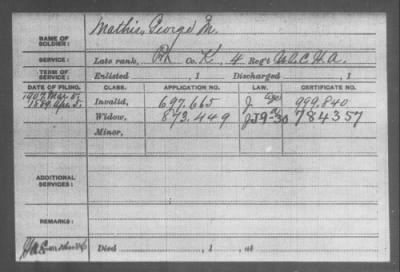 NAME OF SOLDIER: Mathis, George M.
SERVICE: Late rank, Co. K, 4 Reg't U.S.C.H.A.
TERM OF SERVICE: Enlisted , 1 Discharged , 1
DATE OF FILING. CLASS. APPLICATION NO. LAW. CERTIFICATE NO.
1907. Mar. 5. Invalid, 697.665 J Age 999.840
1889. Apr. 5. Widow, 873.449 784357
Minor,
ADDITIONAL SERVICES:
REMARKS:
Died , 1 , at